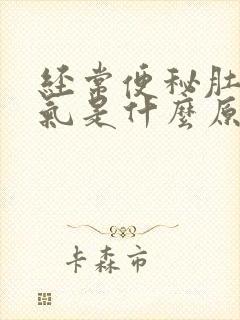 經常便秘肚
氣是什麼原
卡森市